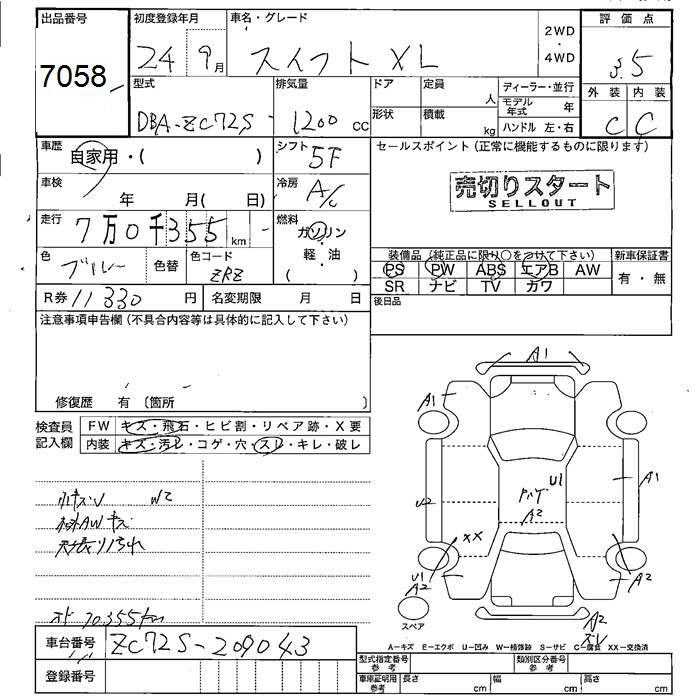 出品番号
7058
初度登録年月
24 9月
車名・グレード
スイフト XL
2WD
・
4WD
評価点
3.5
外装 内装
C C
型式
DBA-ZC72S
排気量
1200 cc
ドア
形状
定員
人
積載
kg
ディーラー・並行
モデル年式 年
ハンドル 左・右
車歴
自家用・( )
シフト
5F
セールスポイント(正常に機能するものに限ります)
売切りスタート
SELLOUT
車検
年 月( 日)
冷房
A/C
走行
7万0千355km
燃料
ガソリン
・
軽・油
( )
色
ブルー
色替
色コード
ZRZ
装備品(純正品に限り○をつけて下さい)
新車保証書
PS PW ABS エアB AW
SR ナビ TV カワ
有・無
後日品
R券 11330円
名変期限 月 日
注意事項申告欄(不具合内容等は具体的に記入して下さい)
修復歴 有〔箇所 〕
検査員記入欄
FW キズ・飛石・ヒビ割・リペア跡・X要
内装 キズ・汚レ・コゲ・穴・スレ・キレ・破レ
W2
AWキズ
汚れ
70355km
A1
A1
A1
U2
U1
A2
XX
U1
A2
A2
A2
スペア
A—キズ E—エクボ U—凹み W—補修跡 S—サビ C—腐食 XX—交換済
車台番号
ZC72S-209043
登録番号
型式指定番号 参考
類別区分番号 参考
車庫証明用 参考
長さ cm
幅 cm
高さ cm